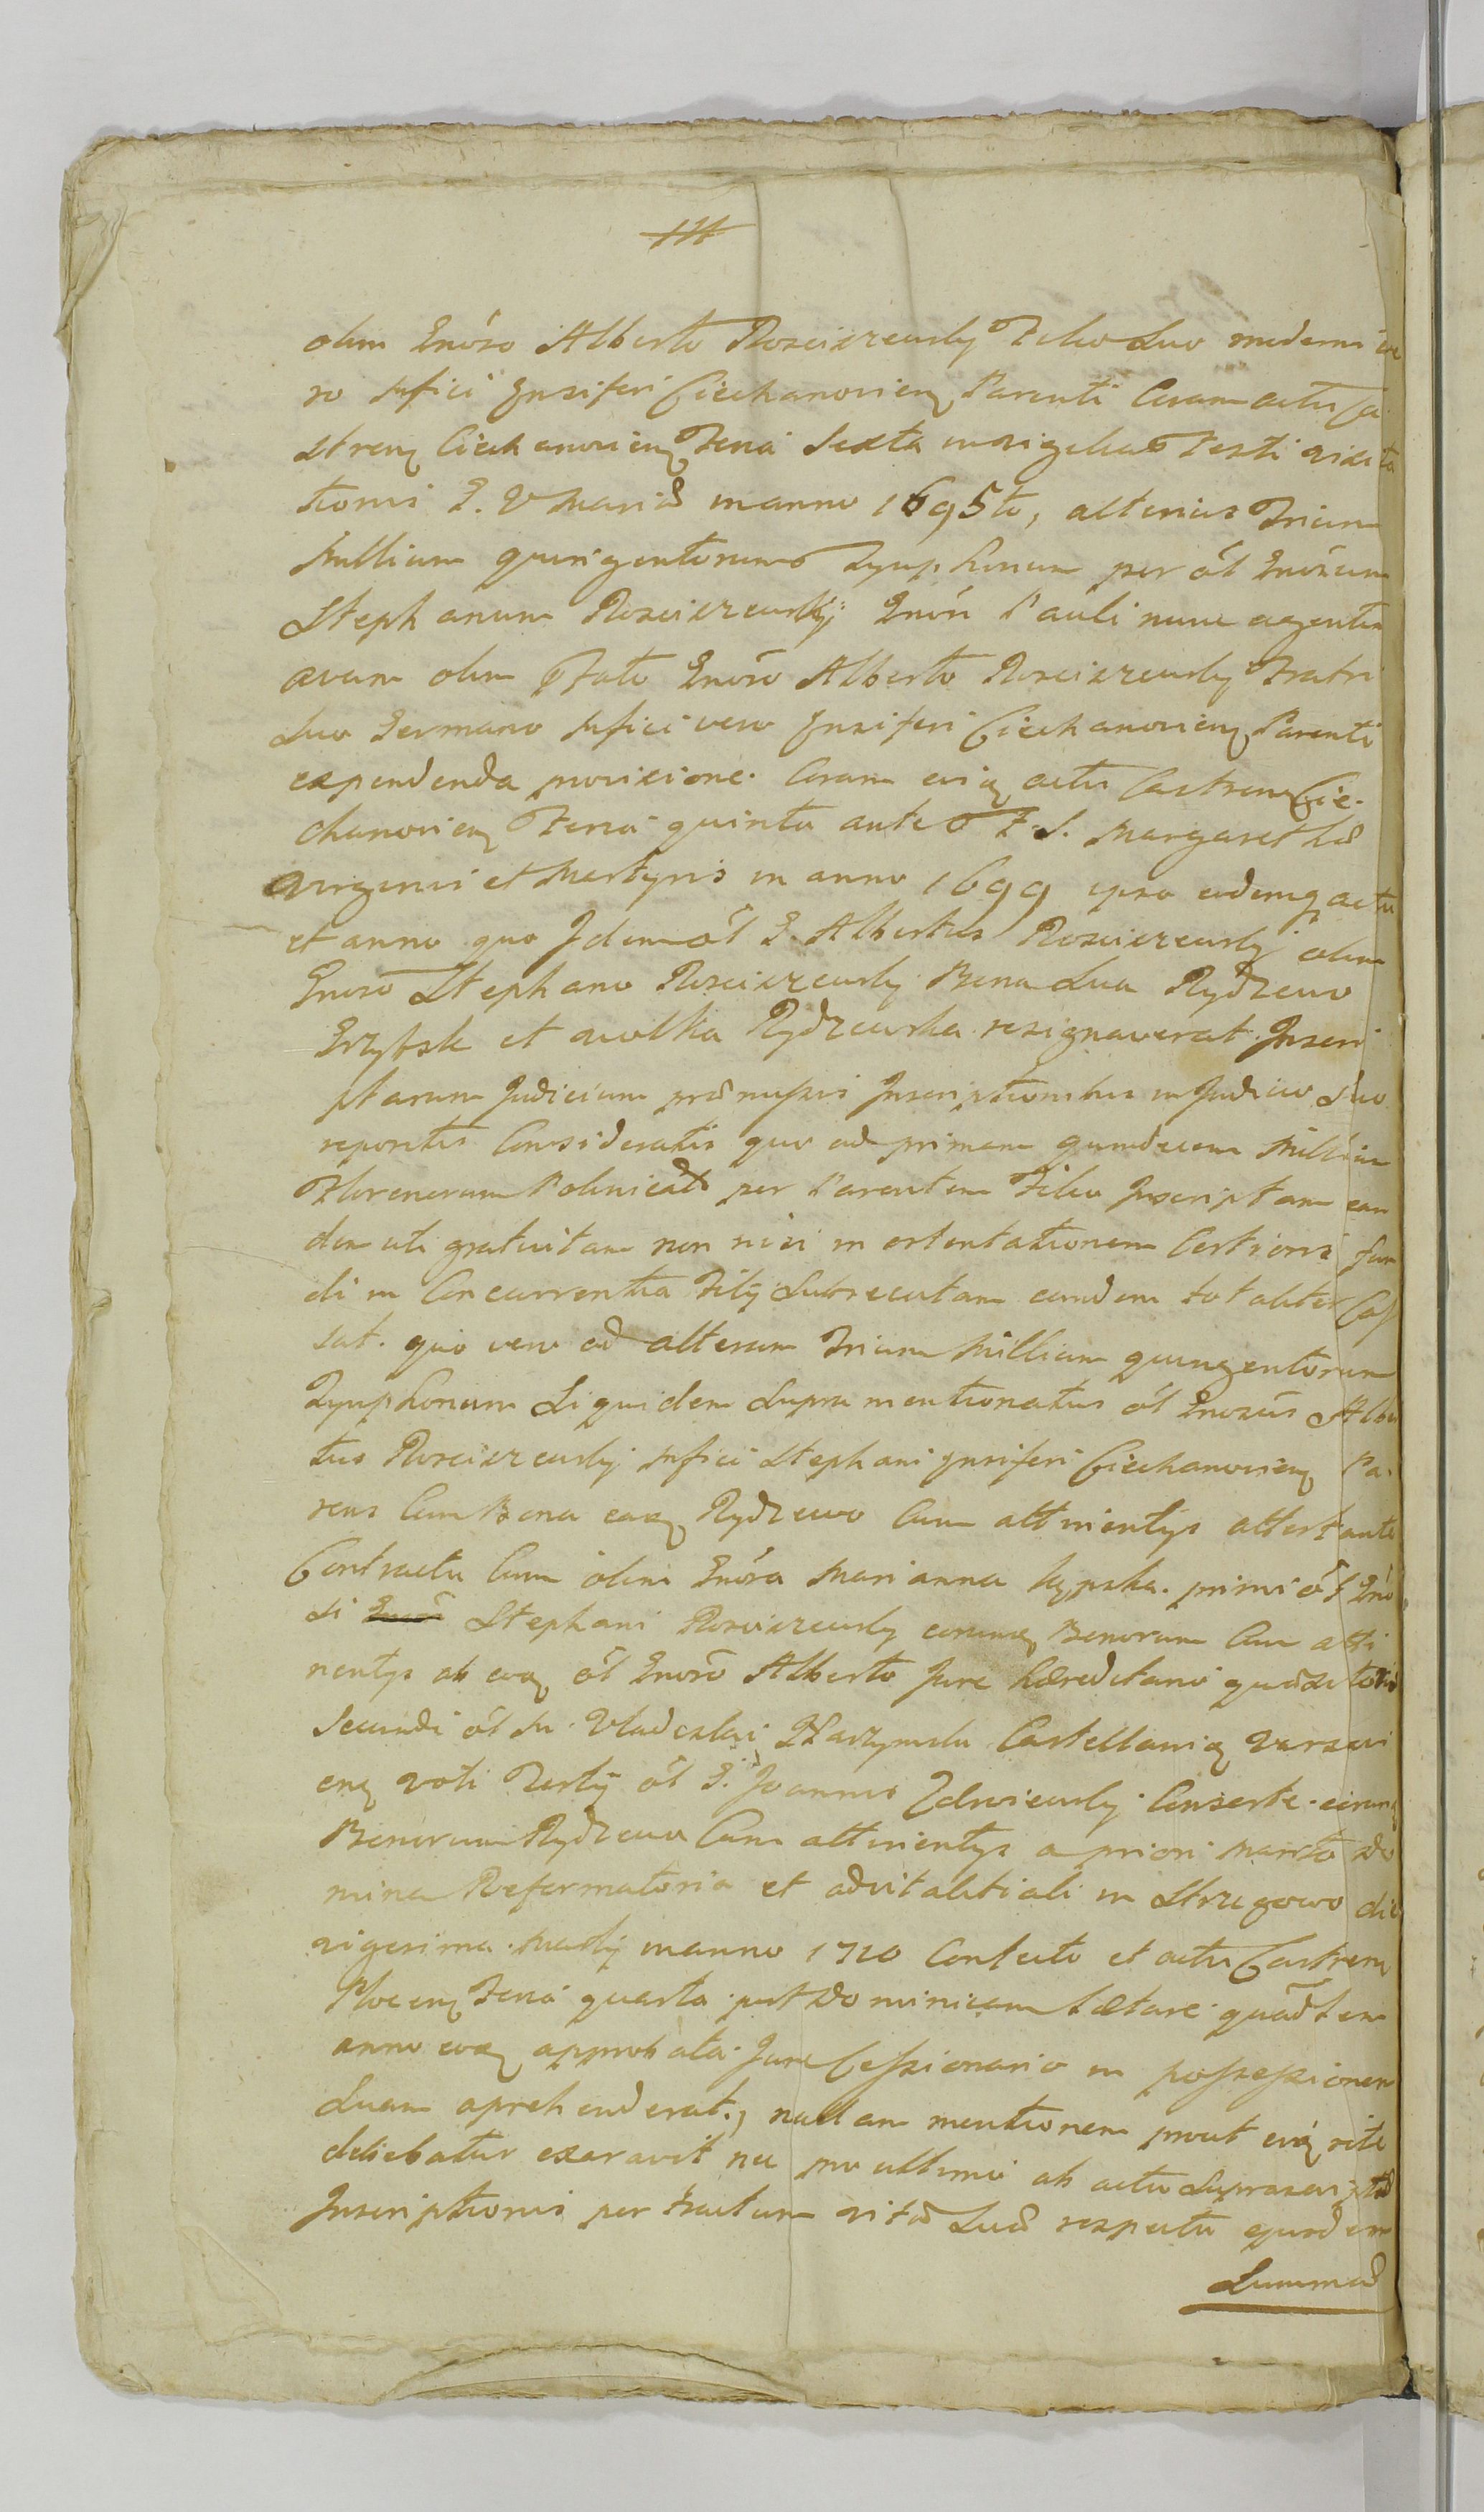 olim Gnōso Alberto Rosciszewsky Filio Suo moderni ve
ro Mfici Ensiferi Ciechanovien Parenti Coram actis Ca
stren Ciechanovien Feria Sexta in vigilia Festi visita
tionis B. V Mariæ in anno 1695to, alterius Trium
Millium quingentorum Zyuphonum per ol Gnōsum
Stephanum Rosciszewskÿ Gnōsi Pauli nunc agentis
avum olim Pfato Gnōso Alberto Rosciszewsky Fratri
Suo Germano Mfici vero Ensiferi Ciechanovien Parenti
expendenda provisione. Coram eisq actis Castren Cie-
chanovien Feria quinta ante F. S. Margarethæ
virginis et Martyris in anno 1699 ipso eodemq actu
et anno quo Idem ol G. Albertus Rosciszewsky olim
Gnoso Stephano Rosciszewsky Bona Sua Rydzewo
Grzybsk et Wolka Rydzewska resignaverat Inscri
ptarum Judicium præmissis Inscriptionibus in Judicio Suo
repositis Consideratis quo ad primam quindecem Millium
Florenorum Polonicāl per Parentem Filio Inscriptam ean
dem uti gratuitam non nisi in ostentationem Certioris fun
di in Concurrentia Filÿ Subsecutam eamdem totaliter Cas
sat. quo vero ad alteram Trium Millium quingentorum
Zyuphonum Siquidem Supra mentionatus ol Gnosus Alber
tus Rosciszewsky Mfici Stephani Ensiferi Ciechanovien Pa-
rens Cum Bona eaq Rydzewo Cum attinentÿs attestante
Contractu Cum olim Gnōsa Marianna primi ol Gno
si Stephani Rosciszewsky eorumq Bonorum Cum atti
nentÿs ab eoq ol Gnoso Alberto Jure hæreditario quæsitoris
Secundi ol M. Vladislai Castellani Varsavi
en voti Tertÿ ol G. Joannis Conserte. eorumq
Bonorum Rydzewo Cum attinentÿs a priori Marito Do
mina Reformatoria et advitalitiali in Strzegowo die
vigesima Martÿ in anno 1710 Confecto et actis Castren
Plocen Feria quarta post Dominicam Lætare quadtem
anno eoq approbata Jure Cessionario in possessionem
Suam aprehenderat, nullam mentionem prout eiq rite
debebatur exaravit nec pro ultimo ab actu Suprascriptæ
Inscriptionis per tractum vitæ Suæ respectu ejusdem
Summæ